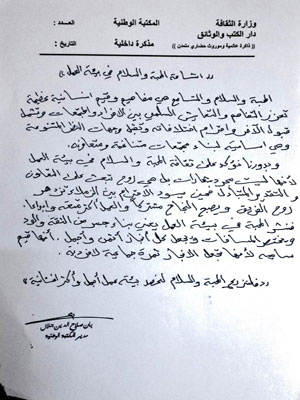 وزارة الثقافة
دار الكتب والوثائق
(( ذاكرة علمية وموروث حضاري متمدن ))
المكتبة الوطنية
مذكرة داخلية
العدد :
التاريخ :
(( اشاعة المحبة والسلام في بيئة العمل ))
المحبة والسلام والتسامح هي مفاهيم وقيم انسانية عظيمة
تعزز التفاهم والتعايش السلمي بين الأفراد والمجتمعات وتشمل
قبول الآخر واحترام اختلافاته وتقبل وجهات النظر المتنوعة
وهي اساسية لبناء مجتمعات متناغمة ومتعاونة.
وبدورنا نؤكد على ثقافة المحبة والسلام في بيئة العمل
لأنها ليست مجرد شعارات بل هي روح تبعث على التعاون
والتقدير المتبادل فحين يسود الاحترام بين الزملاء تزدهر
روح الفريق ويصبح النجاح مشتركاً والعمل أكثر متعة وابداعا.
فنشر المحبة في بيئة العمل يعني بناء جسر من الثقة والود
ويختصر المسافات ويجعل كل انجاز أثمن وأجمل. انها قيم
سامية لأنها تجعل الانجاز ثمرة جماعية لا فردية.
(( فلنزرع المحبة والسلام لنحصد بيئة عمل أجمل وأكثر انسانية ))
بان صلاح الدين
مدير المكتبة الوطنية